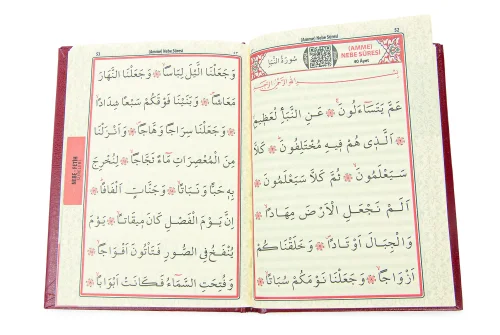 52
(AMME)
NEBE SÛRESİ
40 Ayet
سُورَةُ النَّبَأِ
عَمَّ يَتَسَٓاءَلُونَۚ عَنِ النَّبَأِ الْعَظِيمِۙ
اَلَّذِى هُمْ فِيهِ مُخْتَلِفُونَۜ كَلَّا
سَيَعْلَمُونَۙ ثُمَّ كَلَّا سَيَعْلَمُونَ
اَلَمْ نَجْعَلِ الْاَرْضَ مِهَادًاۙ
وَالْجِبَالَ اَوْتَادًاۖ وَخَلَقْنَاكُمْ
اَزْوَاجًاۙ وَجَعَلْنَا نَوْمَكُمْ سُبَاتًاۙ
53
(Amme) Nebe Sûresi
وَجَعَلْنَا الَّيْلَ لِبَاسًاۙ وَجَعَلْنَا النَّهَارَ
مَعَاشًاۖ وَبَنَيْنَا فَوْقَكُمْ سَبْعًا شِدَادًاۙ
وَجَعَلْنَا سِرَاجًا وَهَّاجًاۖ وَاَنْزَلْنَا
مِنَ الْمُعْصِرَاتِ مَٓاءً ثَجَّاجًاۙ لِنُخْرِجَ
بِهِ حَبًّا وَنَبَاتًاۙ وَجَنَّاتٍ اَلْفَافًاۜ
اِنَّ يَوْمَ الْفَصْلِ كَانَ مِيقَاتًاۙ يَوْمَ
يُنْفَخُ فِى الصُّورِ فَتَاْتُونَ اَفْوَاجًاۙ
وَفُتِحَتِ السَّمَٓاءُ فَكَانَتْ اَبْوَابًاۙ